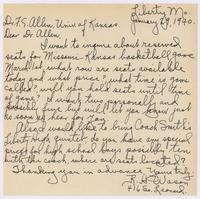 Liberty Mo.
January 29, 1940.
Dr. F. G. Allen, Univ of Kansas.
Dear Dr Allen:
I want to inquire about reserved
seats for Missouri-Kansas basketball game
March 1st. What row are seats available
today and what price? What time is game
called? Will you hold seats until time
of game? I want two personally and
possibly five. Will let you know just
as soon as hear from you.
Also would like to bring Coach Smith's
Liberty High quintet. Do you have any special
price for high school boys possibly ten
with the coach, where are seats located?
Thanking you in advance, Yours truly
F. H.
416 So. Leonard.